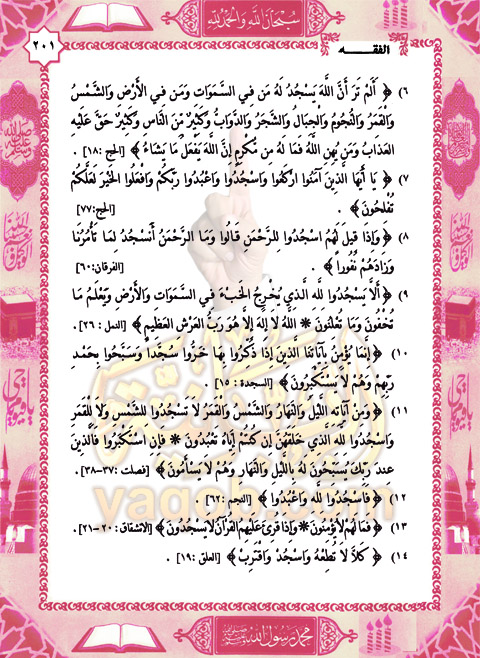 سبحان الله والحمد لله
الفقه
٢٠١
٦) ﴿ أَلَمْ تَرَ أَنَّ اللَّهَ يَسْجُدُ لَهُ مَن فِي السَّمَوَاتِ وَمَن فِي الْأَرْضِ وَالشَّمْسُ
وَالْقَمَرُ وَالنُّجُومُ وَالْجِبَالُ وَالشَّجَرُ وَالدَّوَابُّ وَكَثِيرٌ مِّنَ النَّاسِ وَكَثِيرٌ حَقَّ عَلَيْهِ
الْعَذَابُ وَمَن يُهِنِ اللَّهُ فَمَا لَهُ مِن مُّكْرِمٍ إِنَّ اللَّهَ يَفْعَلُ مَا يَشَاءُ ﴾ [الحج :١٨] .
٧) ﴿ يَا أَيُّهَا الَّذِينَ آمَنُوا ارْكَعُوا وَاسْجُدُوا وَاعْبُدُوا رَبَّكُمْ وَافْعَلُوا الْخَيْرَ لَعَلَّكُمْ
تُفْلِحُونَ ﴾ . [الحج:٧٧]
٨) ﴿ وَإِذَا قِيلَ لَهُمُ اسْجُدُوا لِلرَّحْمَنِ قَالُوا وَمَا الرَّحْمَنُ أَنَسْجُدُ لِمَا تَأْمُرُنَا
وَزَادَهُمْ نُفُوراً ﴾ . [الفرقان:٦٠]
٩) ﴿ أَلَّا يَسْجُدُوا لِلَّهِ الَّذِي يُخْرِجُ الْخَبْءَ فِي السَّمَوَاتِ وَالْأَرْضِ وَيَعْلَمُ مَا
تُخْفُونَ وَمَا تُعْلِنُونَ * اللَّهُ لَا إِلَهَ إِلَّا هُوَ رَبُّ الْعَرْشِ الْعَظِيمِ ﴾ [النمل : ٢٦] .
١٠) ﴿ إِنَّمَا يُؤْمِنُ بِآيَاتِنَا الَّذِينَ إِذَا ذُكِّرُوا بِهَا خَرُّوا سُجَّداً وَسَبَّحُوا بِحَمْدِ
رَبِّهِمْ وَهُمْ لَا يَسْتَكْبِرُونَ ﴾ [السجدة : ١٥] .
١١) ﴿ وَمِنْ آيَاتِهِ اللَّيْلُ وَالنَّهَارُ وَالشَّمْسُ وَالْقَمَرُ لَا تَسْجُدُوا لِلشَّمْسِ وَلَا لِلْقَمَرِ
وَاسْجُدُوا لِلَّهِ الَّذِي خَلَقَهُنَّ إِن كُنتُمْ إِيَّاهُ تَعْبُدُونَ * فَإِنِ اسْتَكْبَرُوا فَالَّذِينَ
عِندَ رَبِّكَ يُسَبِّحُونَ لَهُ بِاللَّيْلِ وَالنَّهَارِ وَهُمْ لَا يَسْأَمُونَ ﴾ [فصلت :٣٧-٣٨] .
١٢) ﴿ فَاسْجُدُوا لِلَّهِ وَاعْبُدُوا ﴾ [النجم :٦٢] .
١٣) ﴿ فَمَا لَهُمْ لَا يُؤْمِنُونَ * وَإِذَا قُرِئَ عَلَيْهِمُ الْقُرْآنُ لَا يَسْجُدُونَ ﴾ [الانشقاق : ٢٠-٢١] .
١٤) ﴿ كَلَّا لَا تُطِعْهُ وَاسْجُدْ وَاقْتَرِبْ ﴾ [العلق :١٩] .
yaqob.com
محمد رسول الله